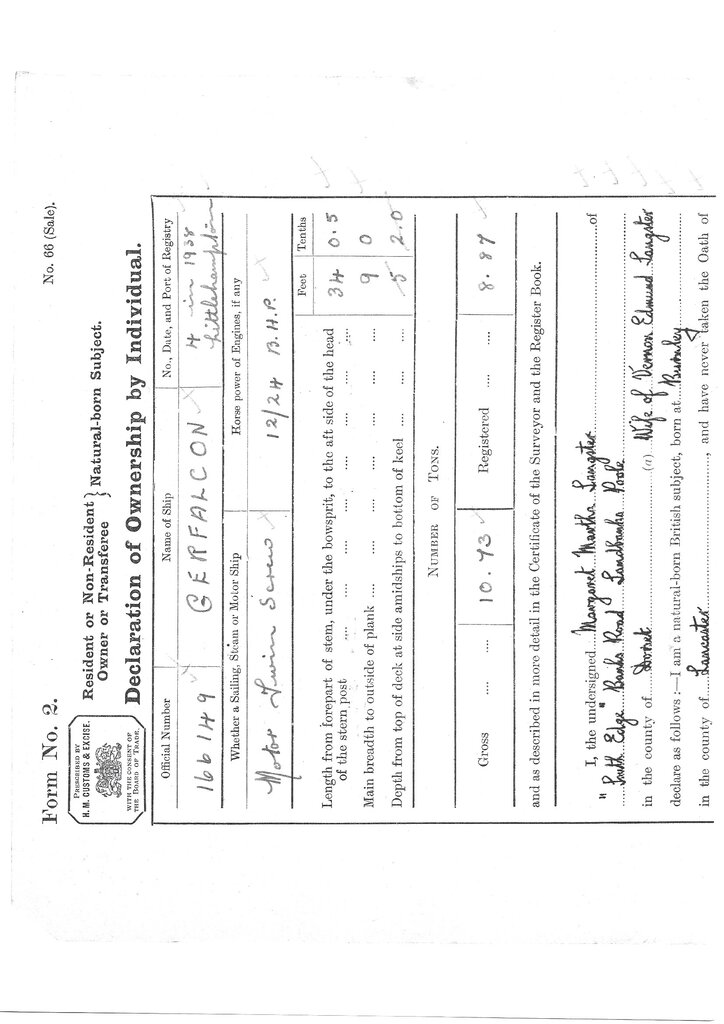 Form No. 2.
No. 66 (Sale).
PRESCRIBED BY
H. M. CUSTOMS & EXCISE.
WITH THE CONSENT OF
THE BOARD OF TRADE.
Resident or Non-Resident } Natural-born Subject.
Owner or Transferee
Declaration of Ownership by Individual.
Official Number Name of Ship No., Date, and Port of Registry
166149 GERFALCON 4 in 1938
Littlehampton
Whether a Sailing, Steam or Motor Ship Horse power of Engines, if any
Motor Twin Screw 12/24 B.H.P.
Feet Tenths
Length from forepart of stem, under the bowsprit, to the aft side of the head
of the stern post .... .... .... .... .... .... .... 34 0.5
Main breadth to outside of plank .... .... .... .... .... .... 9 0
Depth from top of deck at side amidships to bottom of keel .... .... 5 2.0
NUMBER OF TONS.
Gross .... .... 10.73 Registered .... .... 8.87
and as described in more detail in the Certificate of the Surveyor and the Register Book.
I, the undersigned Margaret Martha Langster of
"South Edge" Banks Road Sandbanks Poole
in the county of Dorset (a) Wife of Vernon Edmund Langster
declare as follows :—I am a natural-born British subject, born at Burnley
in the county of Lancaster, and have never taken the Oath of